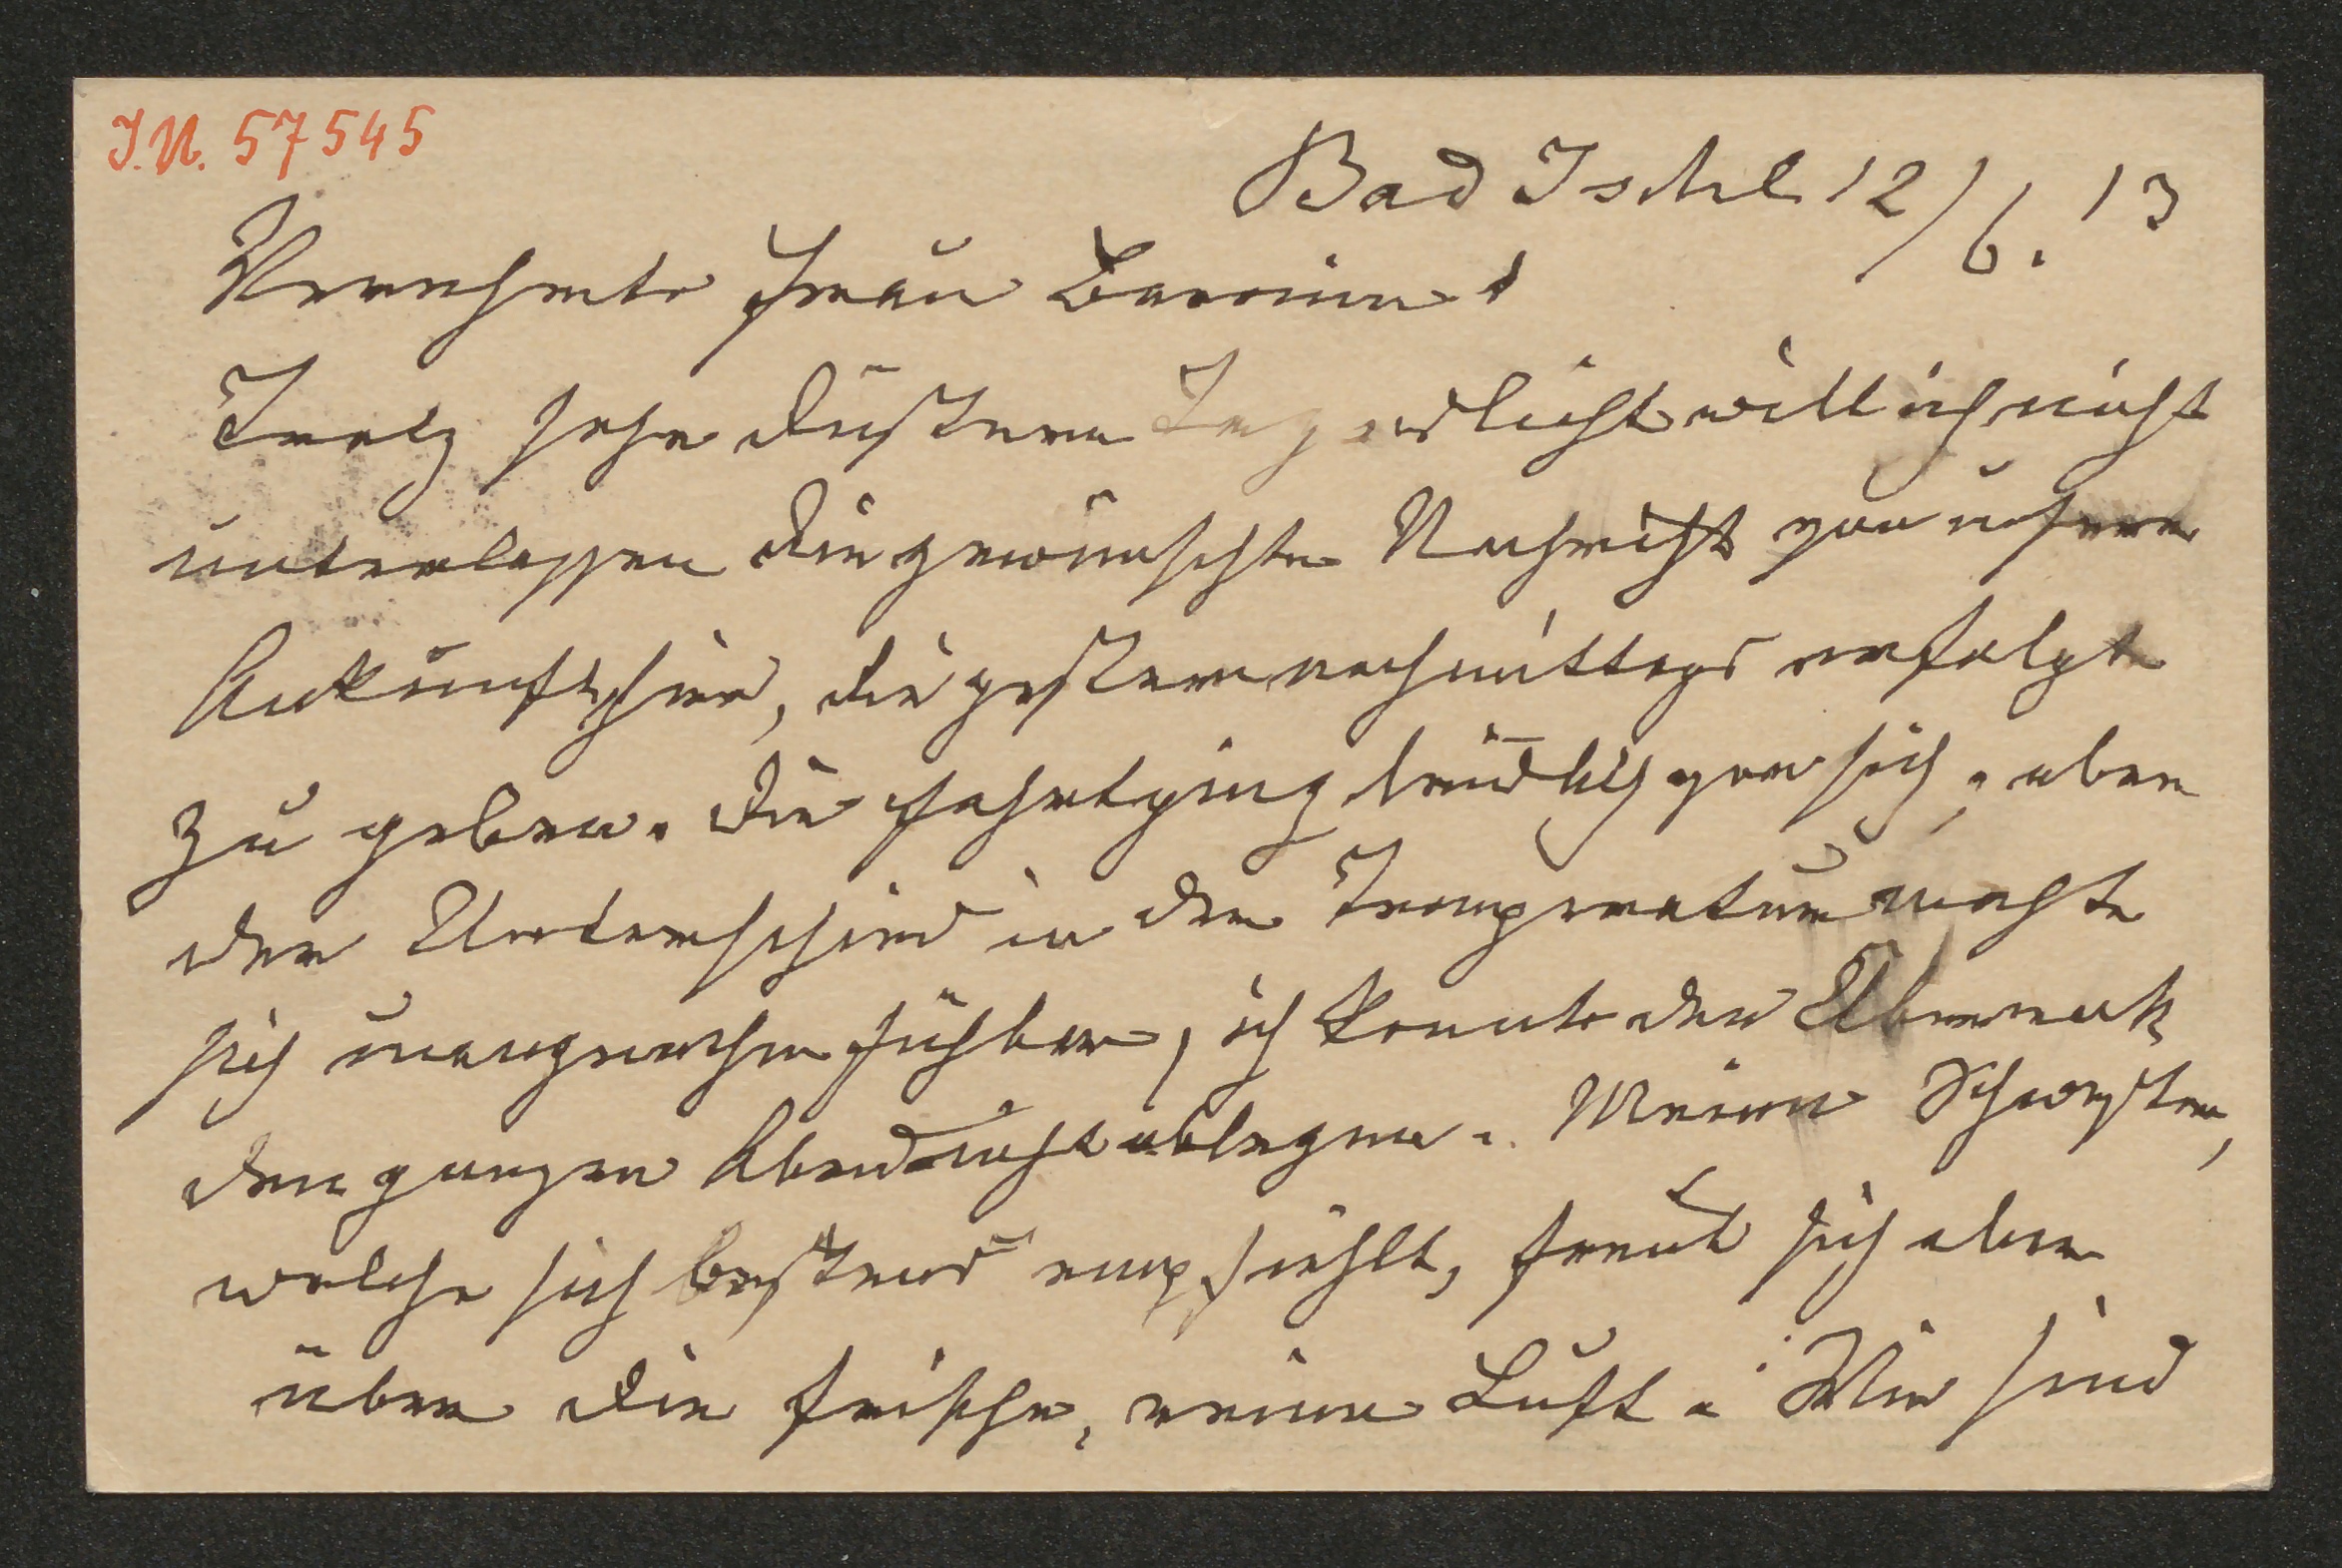 I.N. 57545
Bad Ischl 12/6. 13
Verehrte Frau Baronin!
Trotz sehr düstern Tageslicht will ich nicht
unterlassen die gewünschte Nachricht von unserer
Ankunft hier, die gestern nachmittags erfolgte
zu geben. Die Fahrt ging leidlich vor sich, aber
der Unterschied in der Temperatur machte
sich unangenehm fühlbar, ich konnte den
den ganzen Abend nicht ablegen. Meine Schwester,
welche sich bestens empfiehlt, freut sich aber
über die frische, reine Luft. Wir sind